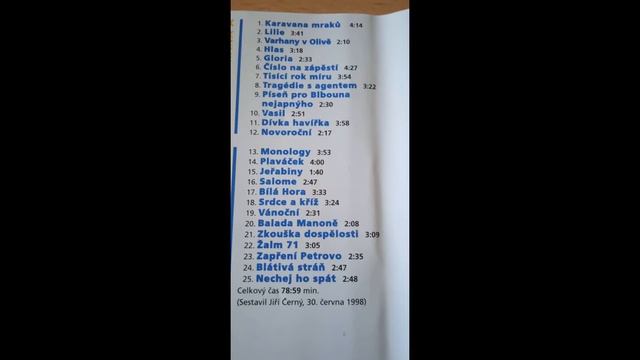 1. Karavana mraků 4:14
2. Lilie 3:41
3. Varhany v Olivě 2:10
4. Hlas 3:18
5. Gloria 2:33
6. Číslo na zápěstí 4:27
7. Tisící rok míru 3:54
8. Tragédie s agentem 3:22
9. Píseň pro Blbouna
nejapnýho 2:30
10. Vasil 2:51
11. Dívka havířka 3:58
12. Novoroční 2:17
13. Monology 3:53
14. Plaváček 4:00
15. Jeřabiny 1:40
16. Salome 2:47
17. Bílá Hora 3:33
18. Srdce a kříž 3:24
19. Vánoční 2:31
20. Balada Manoně 2:08
21. Zkouška dospělosti 3:09
22. Žalm 71 3:05
23. Zapření Petrovo 2:35
24. Blátivá stráň 2:47
25. Nechej ho spát 2:48
Celkový čas 78:59 min.
(Sestavil Jiří Černý, 30. června 1998)